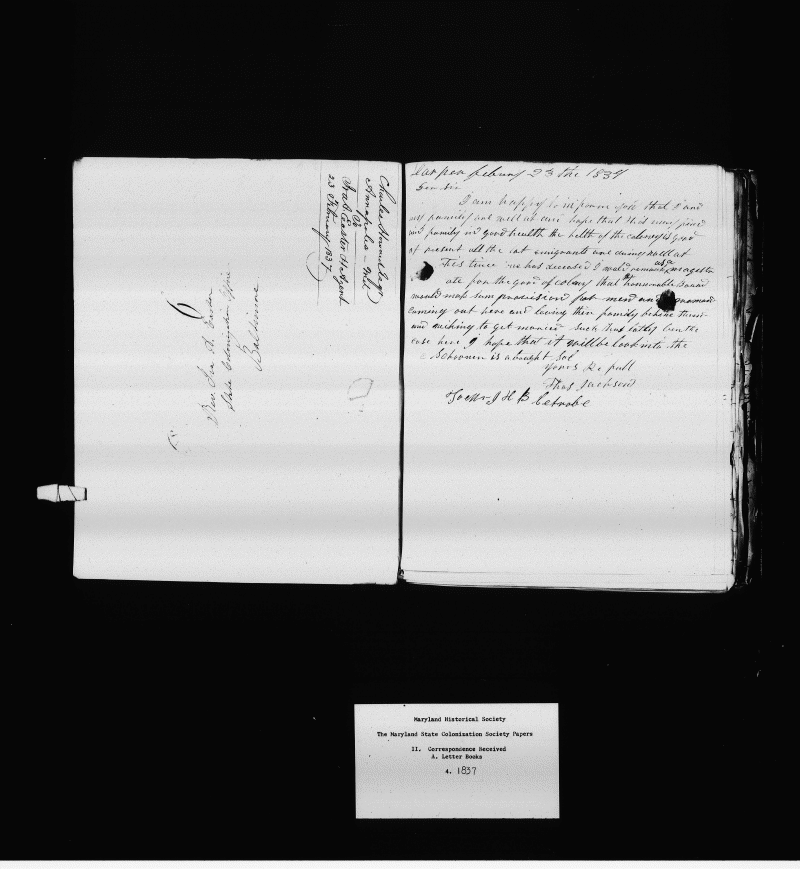 Charles Annapolis - Md
Ira A. Easter H. Agent
23 February 1837
6
Rev. Ira A. Easter
State Colonization Office
Baltimore
febury 23 the 1837
Dear sir
I am happy to inform you that I and
my family are well at and hope that this may find
and family in good health the helth of the coloney is good
at present all the emigrants are well at
This time I wold remark as a magestr
ate for the good of colony that the honourable Board
would mak sum provision for men and
coming out here and leving ther family behine them
and wishing to get married such has lately ben the
case here I hope that it will be look into the
Schooner is a bought Sol
yours Re full
Thos Jackson
To Mr J H B Latrobe
Maryland Historical Society
The Maryland State Colonization Society Papers
II. Correspondence Received
A. Letter Books
4. 1837